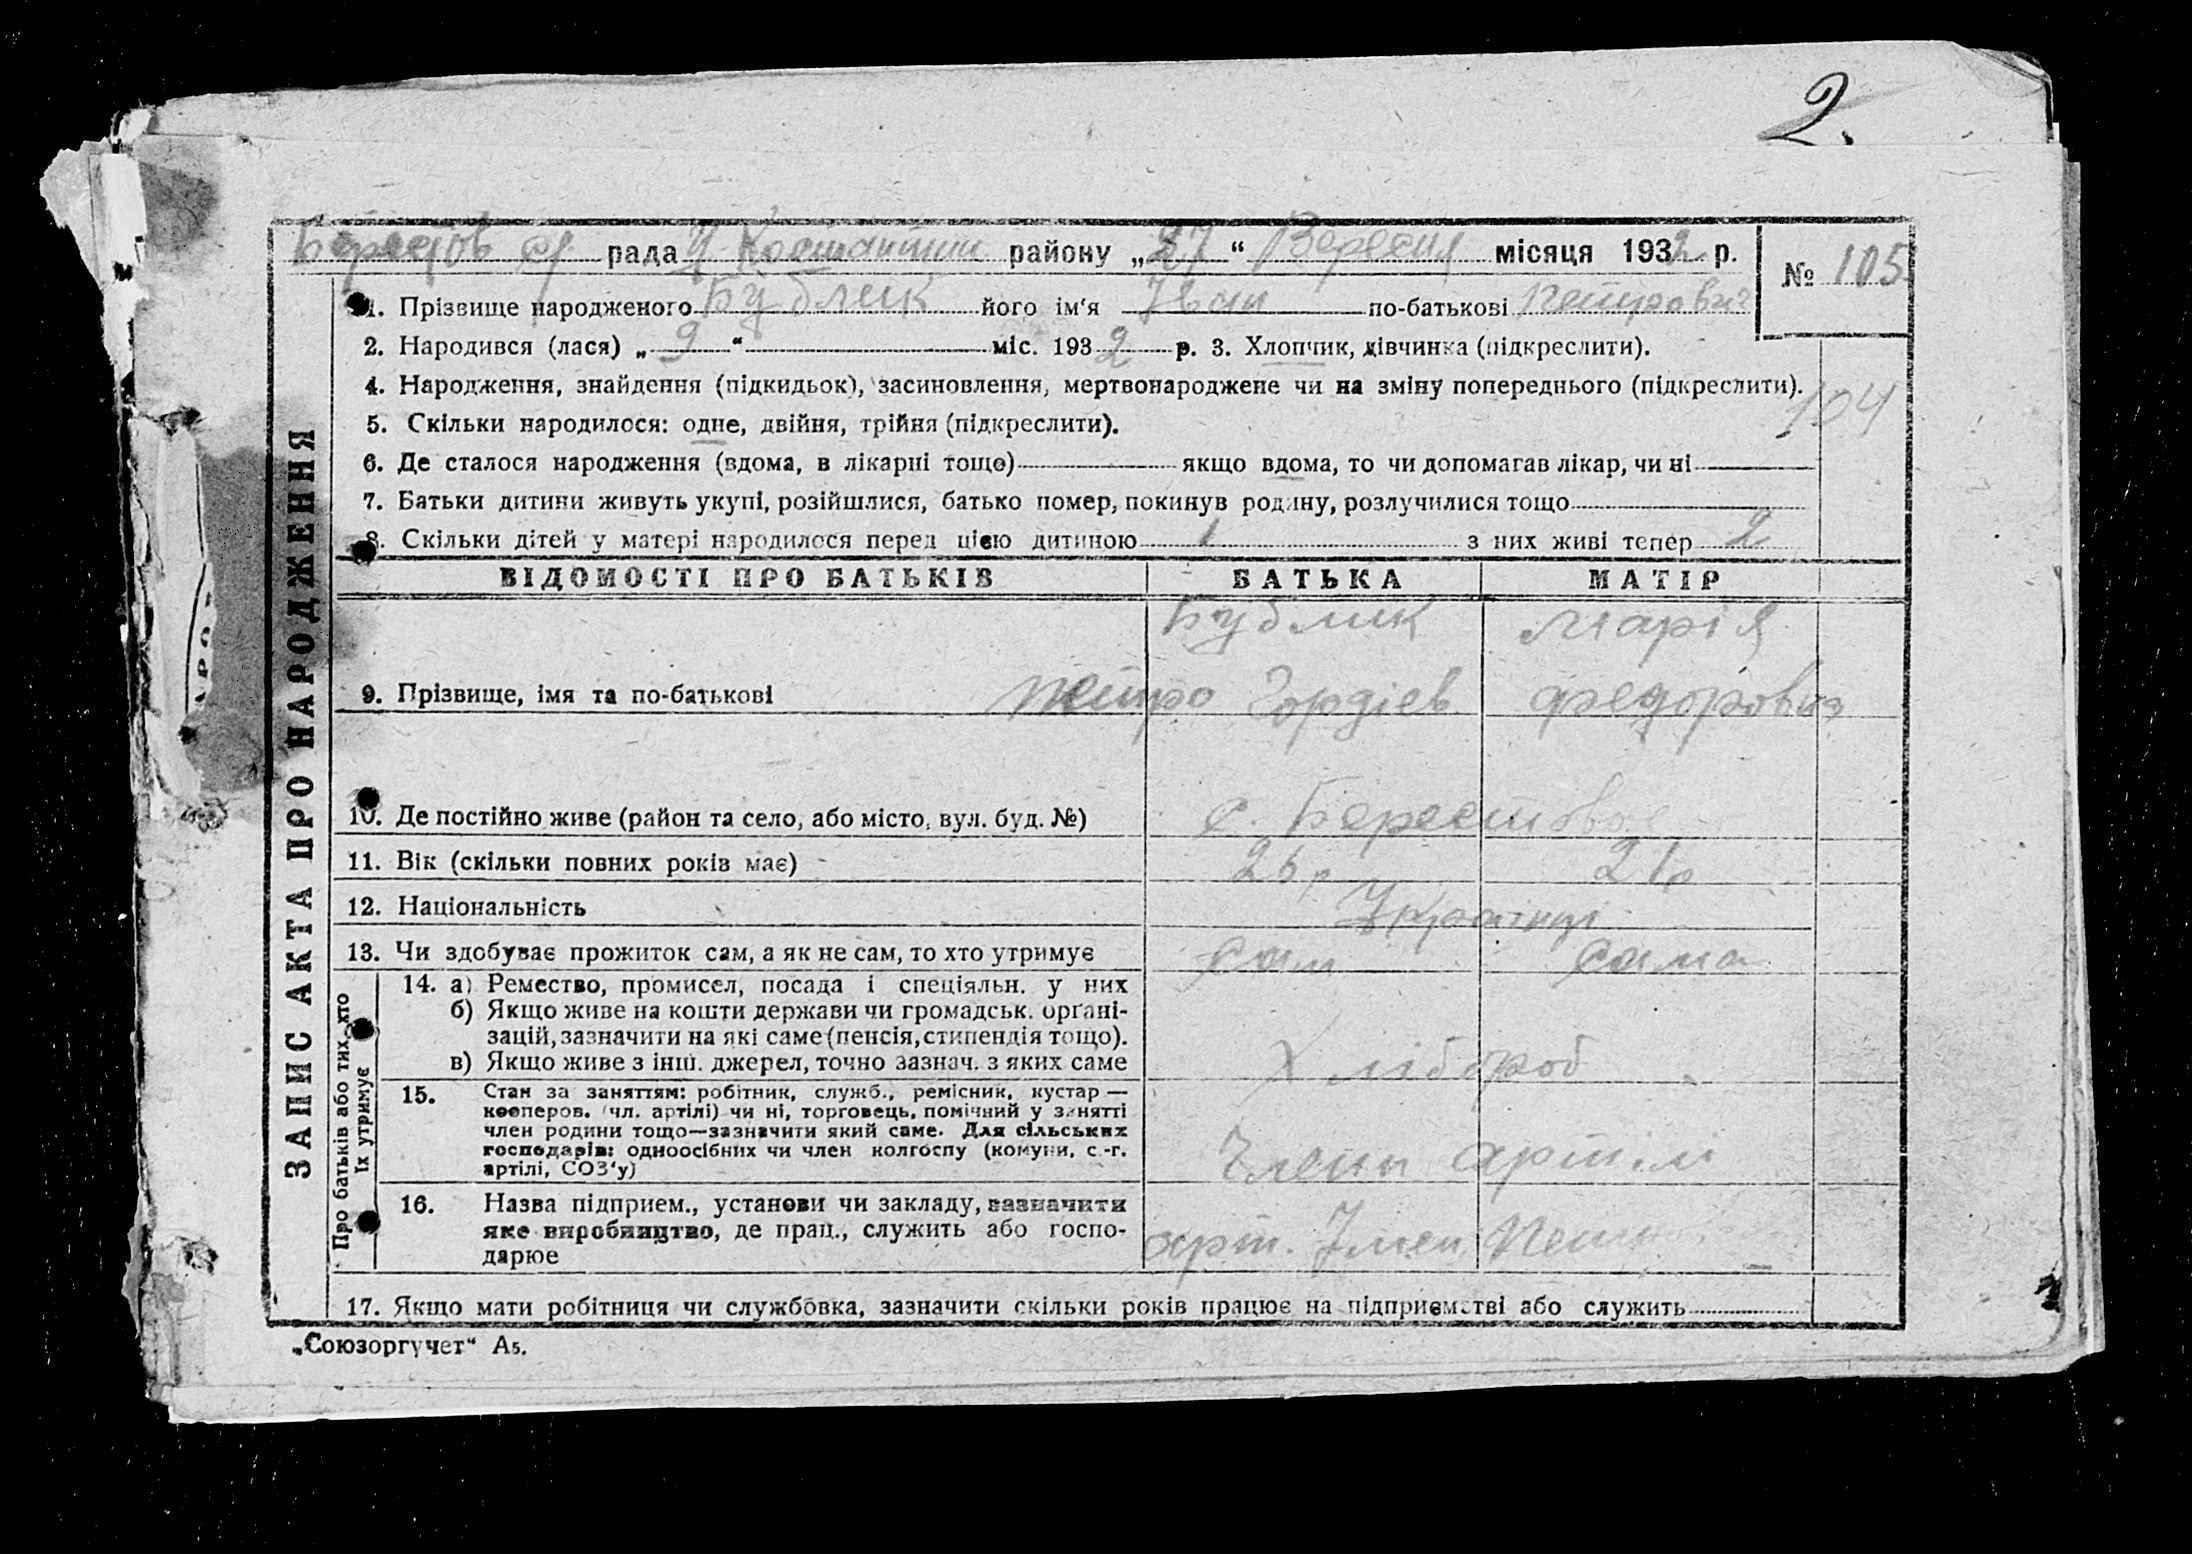 2.
Берестов с/р рада Ч. Костантин району „27“ Вересня місяця 1932 р.
№ 105
1. Прізвище народженого Бублик його ім'я Іван по-батькові Петрович
2. Народився (лася) „9“ міс. 1932 р. 3. Хлопчик, дівчинка (підкреслити).
4. Народження, знайдення (підкидьок), засиновлення, мертвонароджене чи на зміну попереднього (підкреслити).
104
5. Скільки народилося: одне, двійня, трійня (підкреслити).
6. Де сталося народження (вдома, в лікарні тощо) якщо вдома, то чи допомагав лікар, чи ні
7. Батьки дитини живуть укупі, розійшлися, батько помер, покинув родину, розлучилися тощо
8. Скільки дітей у матері народилося перед цією дитиною 1 з них живі тепер 2
ВІДОМОСТІ ПРО БАТЬКІВ БАТЬКА МАТІР
Бублик Марія
9. Прізвище, імя та по-батькові Петро Гордієв Федоровна
10. Де постійно живе (район та село, або місто, вул. буд. №) с. Берестовое
11. Вік (скільки повних років має) 26 р 21 р
12. Національність Українці
13. Чи здобуває прожиток сам, а як не сам, то хто утримує сам сама
14. а) Ремество, промисел, посада і спеціяльн. у них
б) Якщо живе на кошти держави чи громадськ. органі-
зацій, зазначити на які саме (пенсія, стипендія тощо).
в) Якщо живе з інш. джерел, точно зазнач. з яких саме Хлібороб
15. Стан за заняттям: робітник, служб., ремісник, кустар —
кооперов. (чл. артілі) чи ні, торговець, помічний у занятті
член родини тощо—зазначити який саме. Для сільських
господарів: одноосібних чи член колгоспу (комуни, с.-г.
артілі, СОЗ'у) Члени артілі
16. Назва підприєм., установи чи закладу, зазначити
яке виробництво, де прац., служить або госпо-
дарює арт. Імен
17. Якщо мати робітниця чи службовка, зазначити скільки років працює на підприємстві або служить
ЗАПИС АКТА ПРО НАРОДЖЕННЯ
Про батьків або тих, хто
їх утримує
„Союзоргучет“ А5.